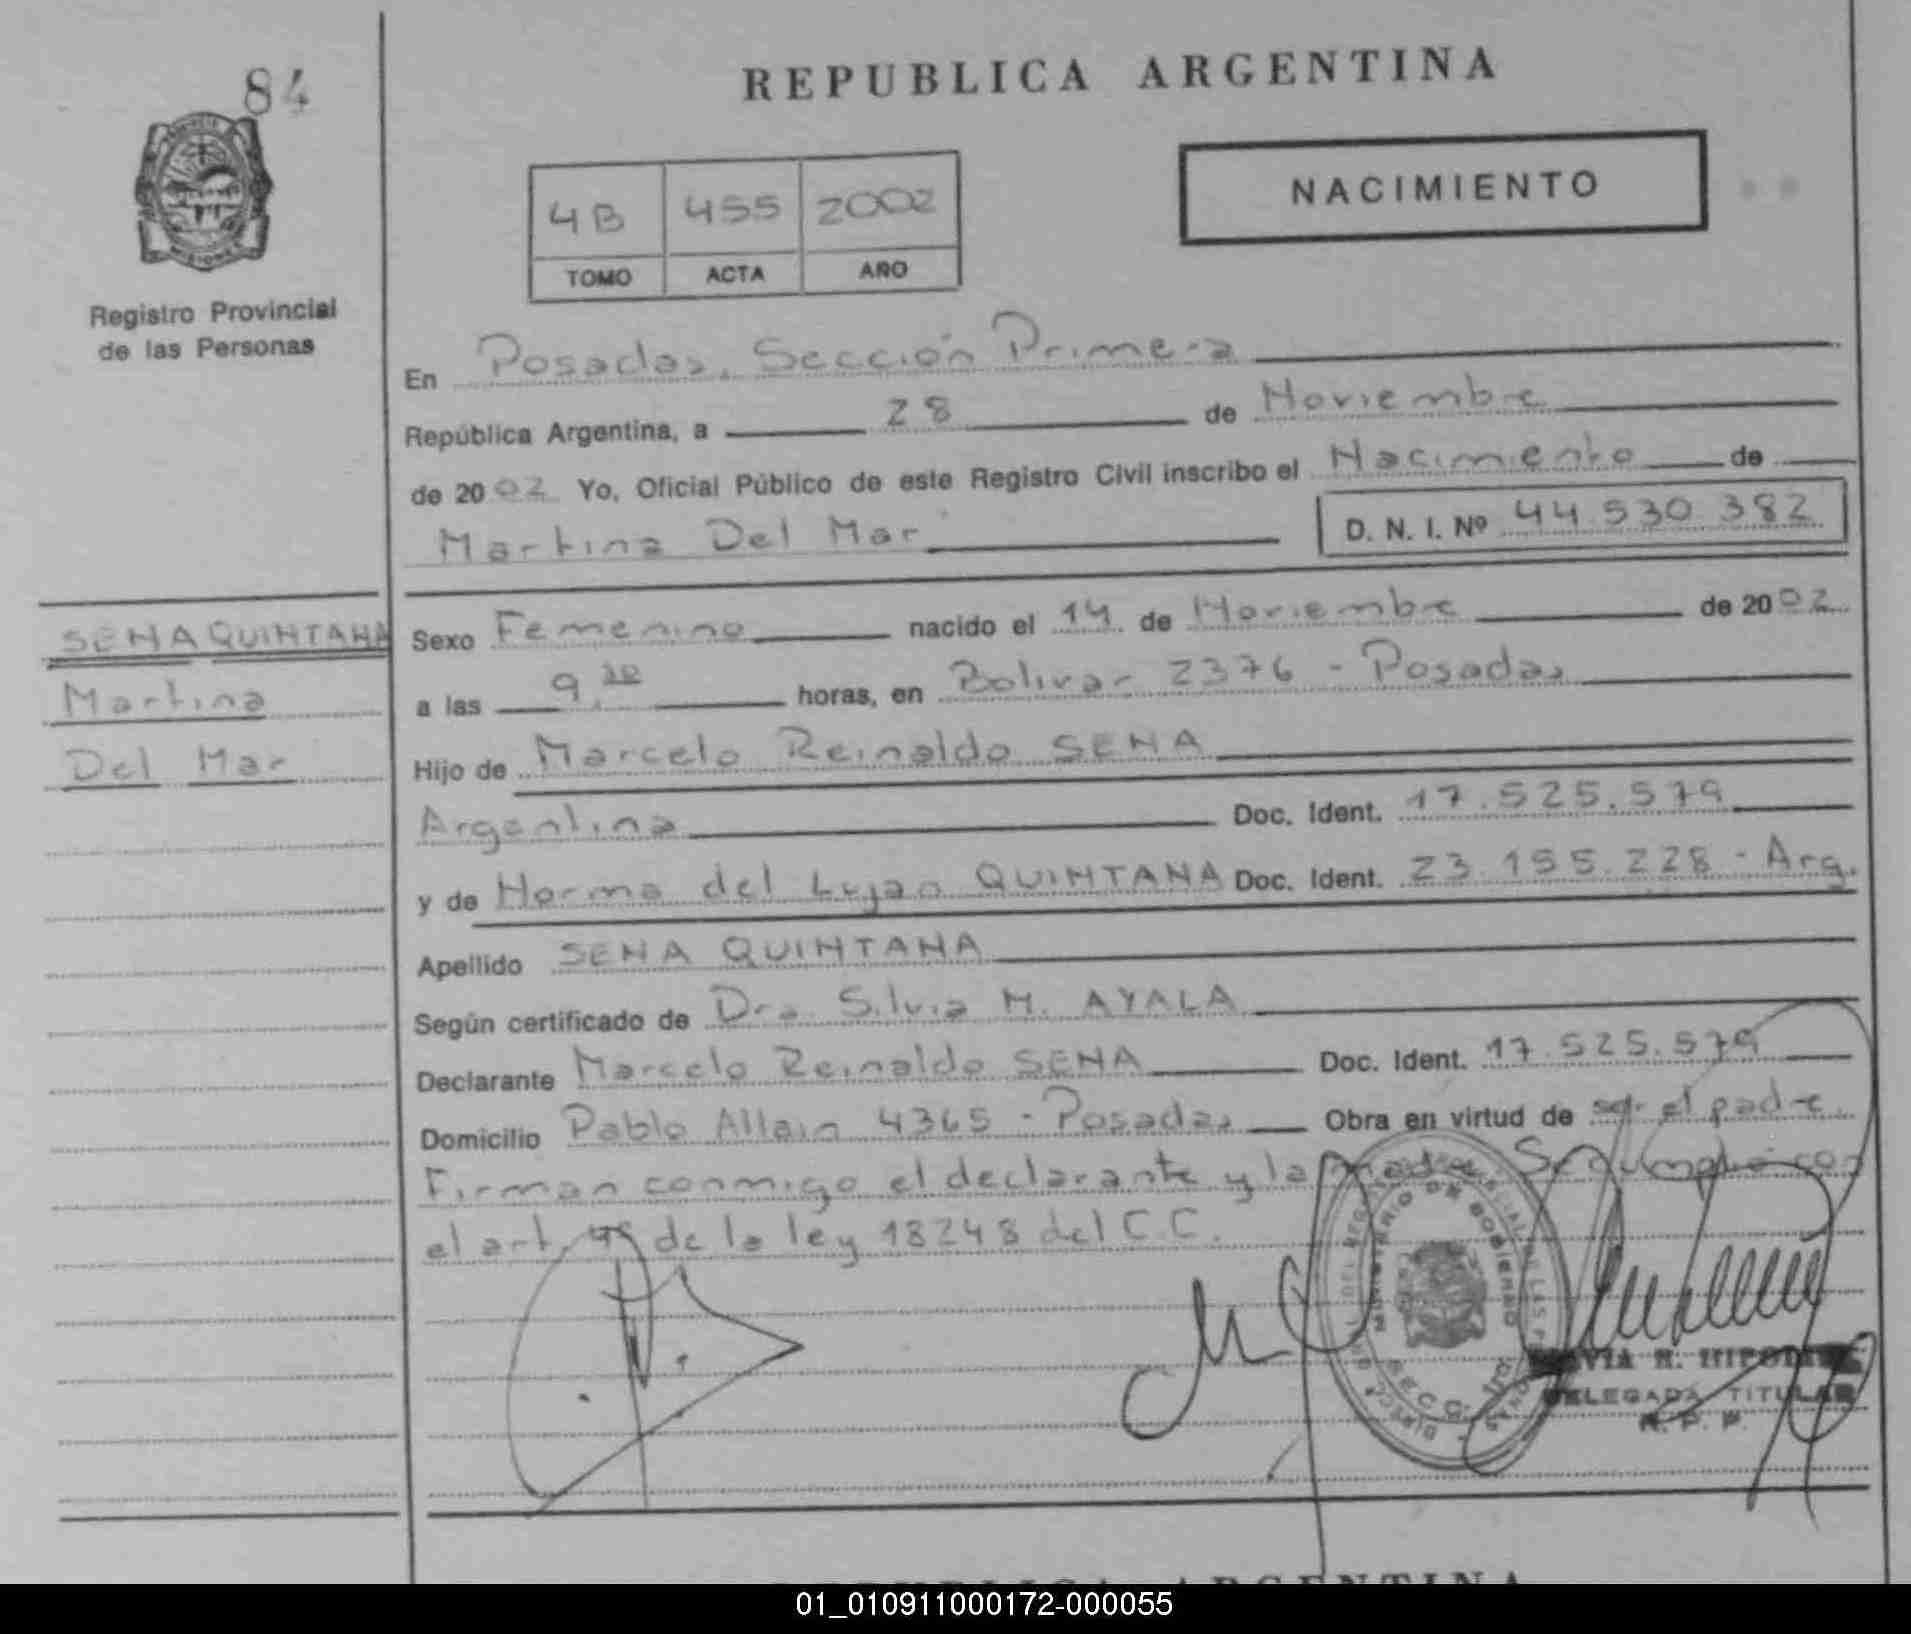 84
REPUBLICA ARGENTINA
NACIMIENTO
4B 455 2002
TOMO ACTA AÑO
Registro Provincial
de las Personas
En Posadas, Sección Primera
República Argentina, a 28 de Noviembre
de 2002 Yo, Oficial Público de este Registro Civil inscribo el Nacimiento de
Martina Del Mar D. N. I. Nº 44.530.382
SENA QUINTANA
Martina
Del Mar
Sexo Femenino nacido el 14 de Noviembre de 2002
a las 9,30 horas, en Bolivar 2376 - Posadas
Hijo de Marcelo Reinaldo SENA
Argentina Doc. Ident. 17.525.579
y de Norma del Lujan QUINTANA Doc. Ident. 23.155.228 - Arg.
Apellido SENA QUINTANA
Según certificado de Dra. Silvia M. AYALA
Declarante Marcelo Reinaldo SENA Doc. Ident. 17.525.579
Domicilio Pablo Allain 4365 - Posadas Obra en virtud de ser el padre.
Firman conmigo el declarante y la madre. Se cumple con
el art. 4º de la ley 18248 del C.C.
MINISTERIO DE GOBIERNO
H. HIPOLIT
DELEGADA TITULAR
R. P. P.
REPUBLICA ARGENTINA
01_010911000172-000055